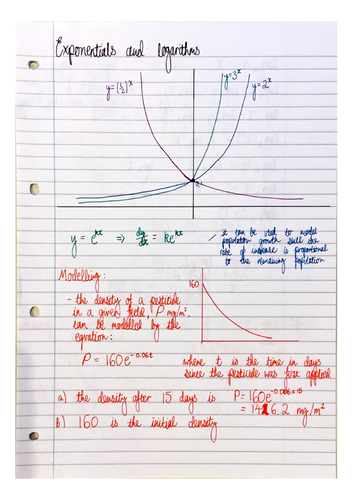 Exponentials and logarithms
y=(½)ˣ
y=3ˣ
y=2ˣ
y = eᵏˣ ⇒ dy/dx = keᵏˣ
it can be used to model
population growth
rate of increase is proportional
to the remaining population
Modelling:
160
- the density of a pesticide
in a given field, P mg/m²,
can be modelled by the
equation:
P = 160e^-0.06t
where t is the time in days
since the pesticide was first applied
a) the density after 15 days is P = 160e^-0.006×15
= 146.2 mg/m²
b) 160 is the initial density